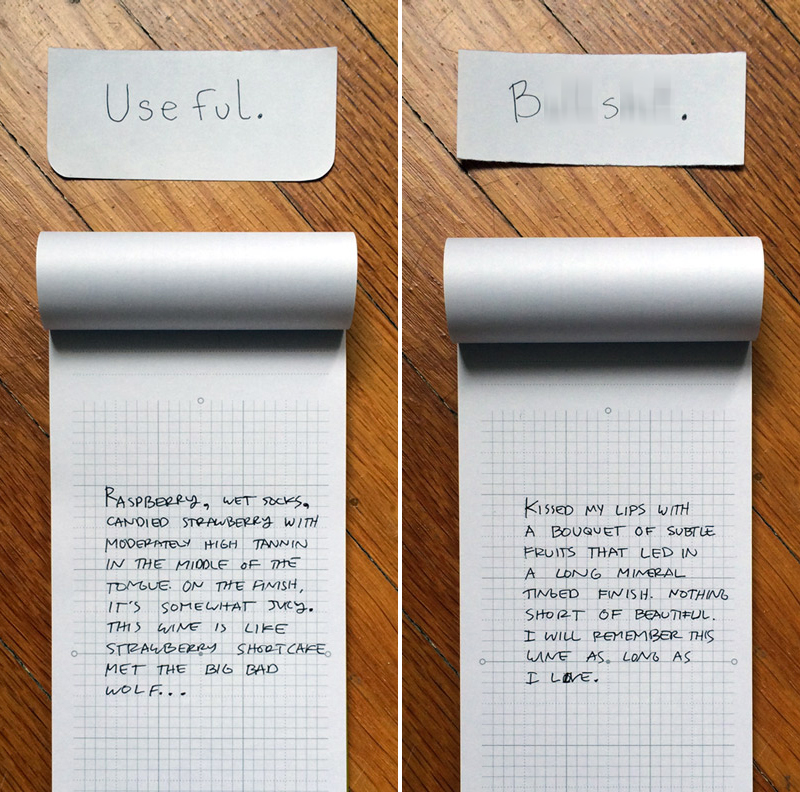 Useful.
RASPBERRY, WET SOCKS,
CANDIED STRAWBERRY WITH
MODERATELY HIGH TANNIN
IN THE MIDDLE OF THE
TONGUE. ON THE FINISH,
IT'S SOMEWHAT JUICY.
THIS WINE IS LIKE
STRAWBERRY SHORTCAKE
MET THE BIG BAD
WOLF...
B s .
KISSED MY LIPS WITH
A BOUQUET OF SUBTLE
FRUITS THAT LED IN
A LONG MINERAL
TINGED FINISH. NOTHING
SHORT OF BEAUTIFUL.
I WILL REMEMBER THIS
WINE AS LONG AS
I